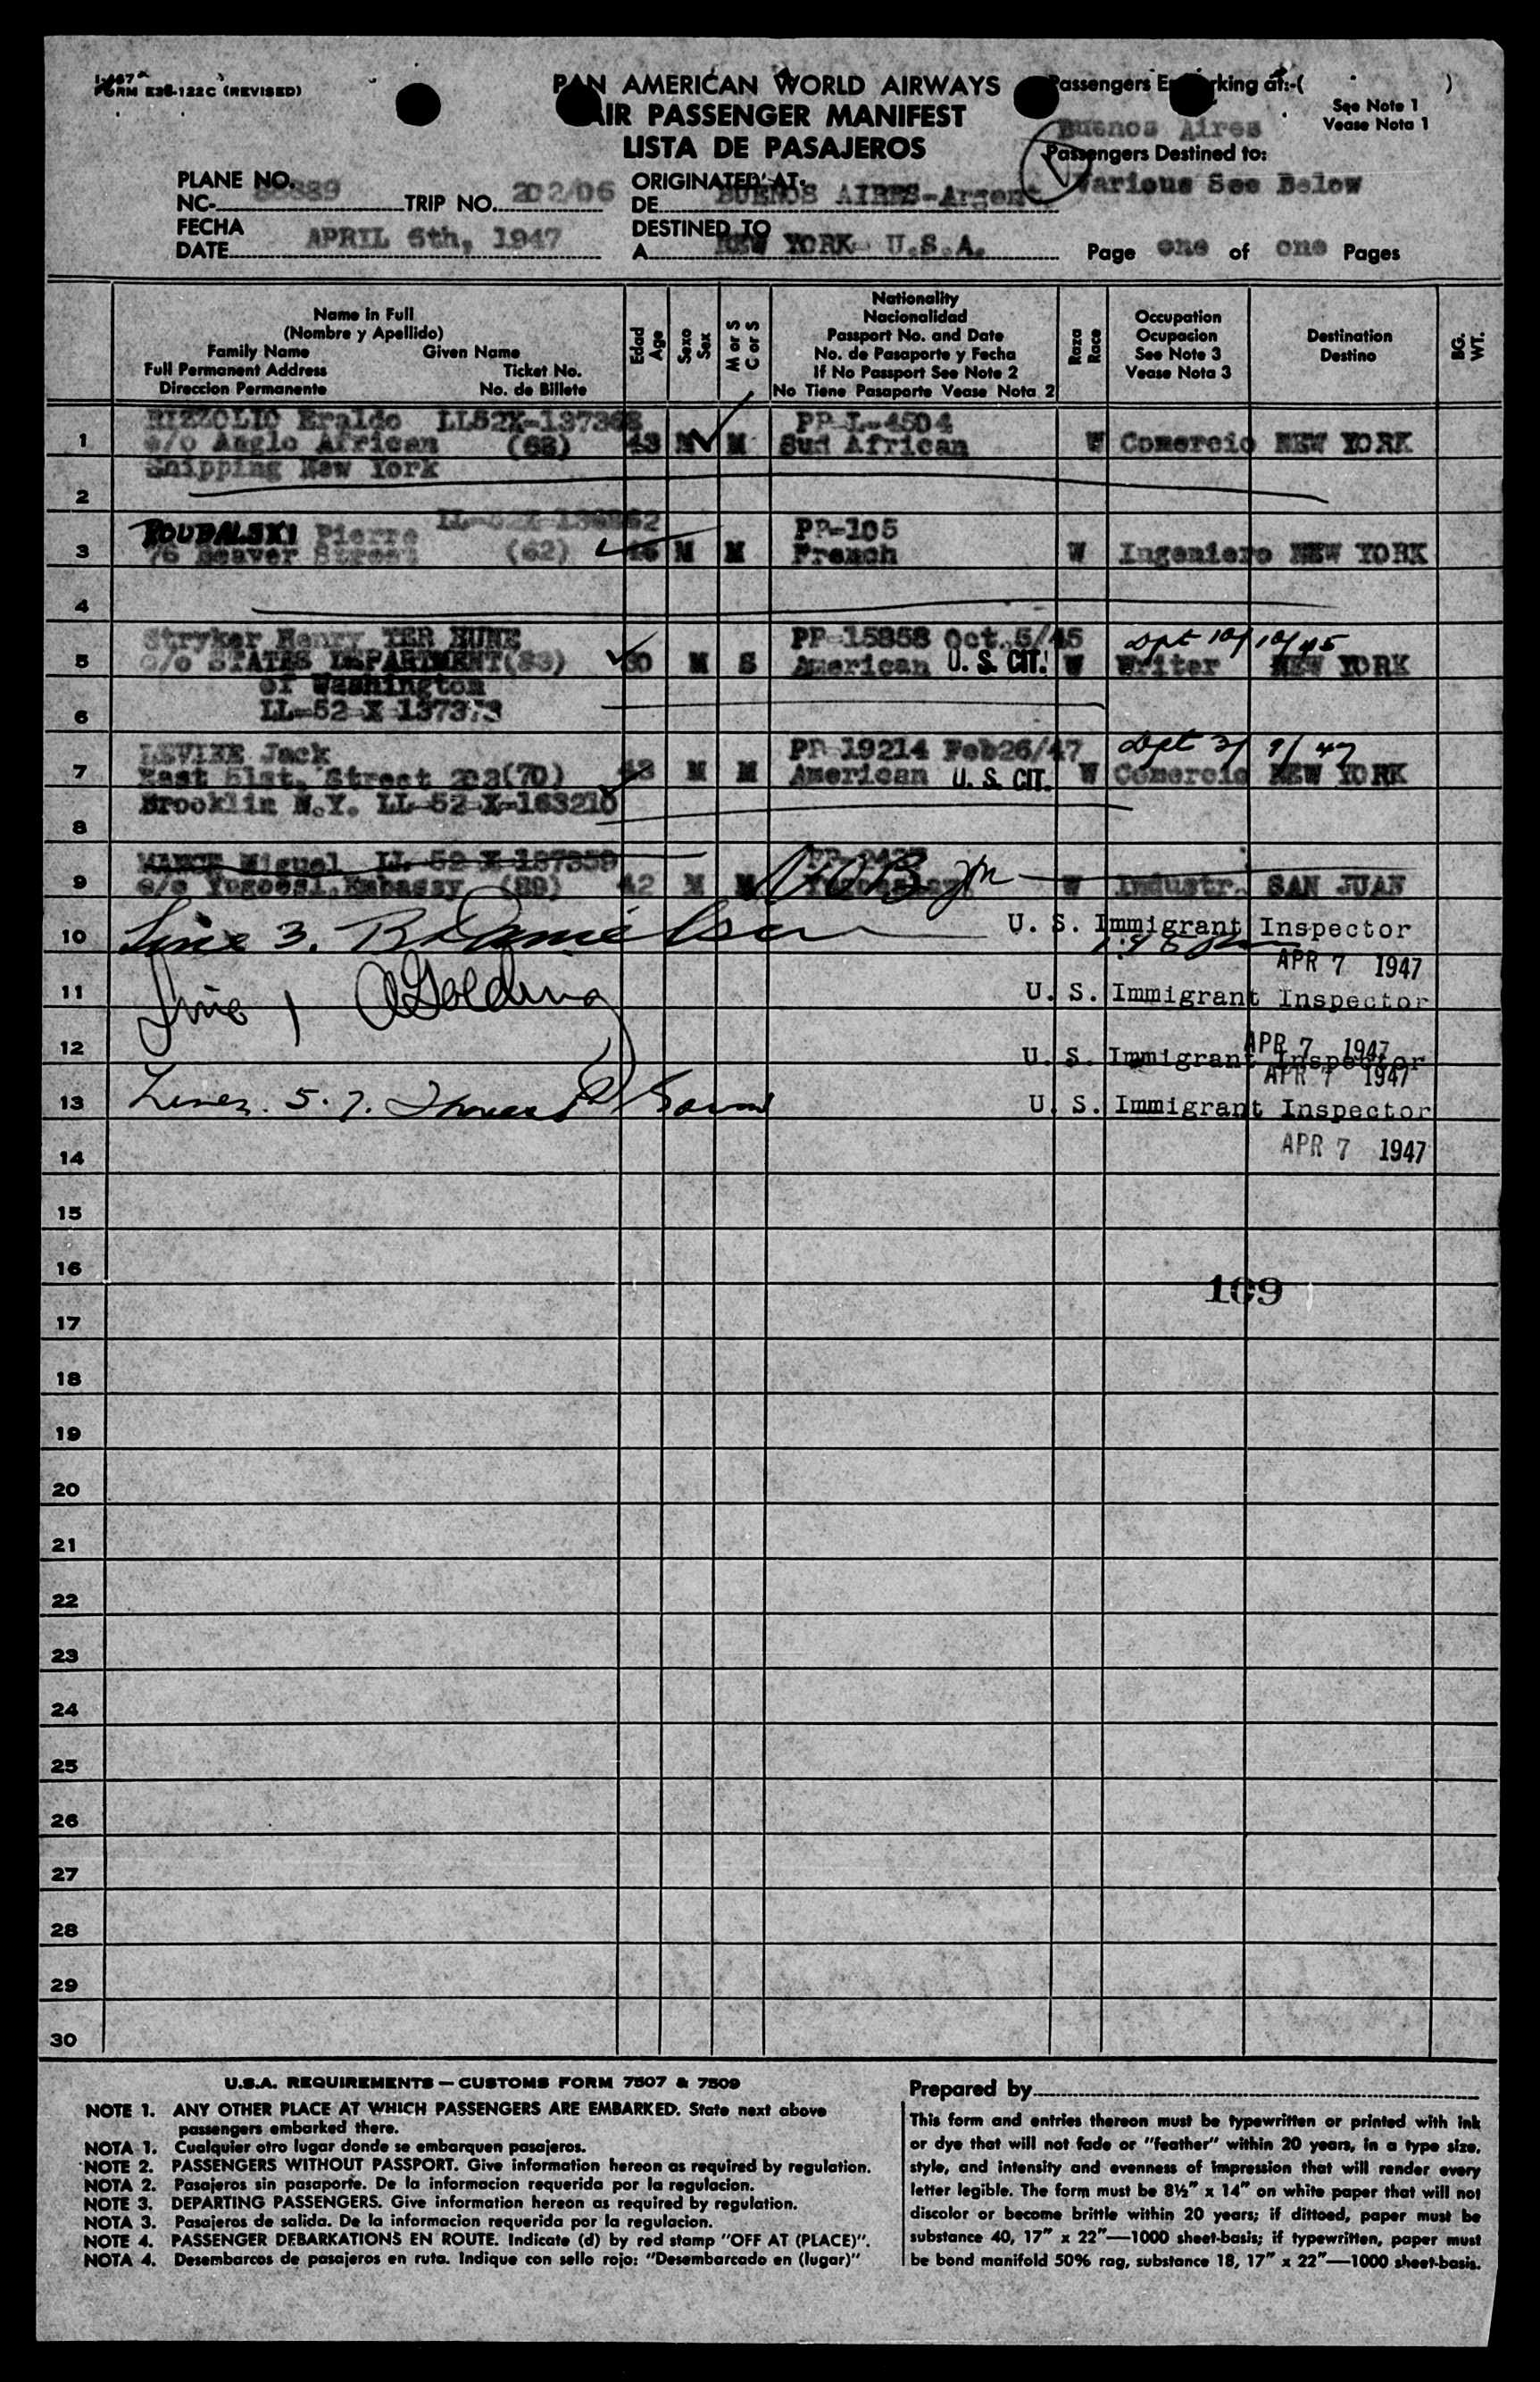 I-467
FORM E36-122C (REVISED)
PAN AMERICAN WORLD AIRWAYS
AIR PASSENGER MANIFEST
LISTA DE PASAJEROS
Passengers Embarking at:-( )
See Note 1
Vease Nota 1
Buenos Aires
Passengers Destined to:
Various See Below
PLANE NO.
NC- 88889 TRIP NO. 202/06
ORIGINATED AT
DE BUENOS AIRES-Argent
FECHA
DATE APRIL 6th, 1947
DESTINED TO
A NEW YORK U.S.A.
Page one of one Pages
Name in Full
(Nombre y Apellido)
Family Name Given Name
Full Permanent Address Ticket No.
Direccion Permanente No. de Billete
Edad Age
Sexo Sex
M or S C or S
Nationality
Nacionalidad
Passport No. and Date
No. de Pasaporte y Fecha
If No Passport See Note 2
No Tiene Pasaporte Vease Nota 2
Raza Race
Occupation
Ocupacion
See Note 3
Vease Nota 3
Destination
Destino
BG. WT.
RIZZOLIO Eraldo LL52X-137368 PP L-4504
1 c/o Anglo African (68) 43 M M Sud African W Comercio NEW YORK
Shipping New York
2
ROUDALSKI Pierre PP-105
3 76 Beaver Street (62) M M French W Ingeniero NEW YORK
4
Stryker Henry TER HUNE PP 15858 Oct.5/45 Dpt 10/10/45
5 c/o STATES DEPARTMENT(83) M S American U. S. CIT. W Writer NEW YORK
of Washington
6 LL-52 X 137373
LEVINE Jack PP 19214 Feb26/47 Dpt 3/9/47
7 East 51st, Street 203(70) M M American U. S. CIT. W Comercio NEW YORK
Brooklin N.Y. LL-52-X-163210
8
Miguel LL 52 X 137359
9 c/o Yugoesl.Embassy (89) 42 M M W Industr. SAN JUAN
10 Line 3. R Danielsen U. S. Immigrant Inspector
APR 7 1947
11 Line 1 A Golding U. S. Immigrant Inspector
APR 7 1947
12 U. S. Immigrant Inspector
APR 7 1947
13 Lines. 5. 7. U. S. Immigrant Inspector
14 APR 7 1947
15
16
109
17
18
19
20
21
22
23
24
25
26
27
28
29
30
U.S.A. REQUIREMENTS — CUSTOMS FORM 7507 & 7509
NOTE 1. ANY OTHER PLACE AT WHICH PASSENGERS ARE EMBARKED. State next above
passengers embarked there.
NOTA 1. Cualquier otro lugar donde se embarquen pasajeros.
NOTE 2. PASSENGERS WITHOUT PASSPORT. Give information hereon as required by regulation.
NOTA 2. Pasajeros sin pasaporte. De la informacion requerida por la regulacion.
NOTE 3. DEPARTING PASSENGERS. Give information hereon as required by regulation.
NOTA 3. Pasajeros de salida. De la informacion requerida por la regulacion.
NOTE 4. PASSENGER DEBARKATIONS EN ROUTE. Indicate (d) by red stamp "OFF AT (PLACE)".
NOTA 4. Desembarcos de pasajeros en ruta. Indique con sello rojo: "Desembarcado en (lugar)"
Prepared by
This form and entries thereon must be typewritten or printed with ink
or dye that will not fade or "feather" within 20 years, in a type size,
style, and intensity and evenness of impression that will render every
letter legible. The form must be 8½" x 14" on white paper that will not
discolor or become brittle within 20 years; if dittoed, paper must be
substance 40, 17" x 22"—1000 sheet-basis; if typewritten, paper must
be bond manifold 50% rag, substance 18, 17" x 22"—1000 sheet-basis.